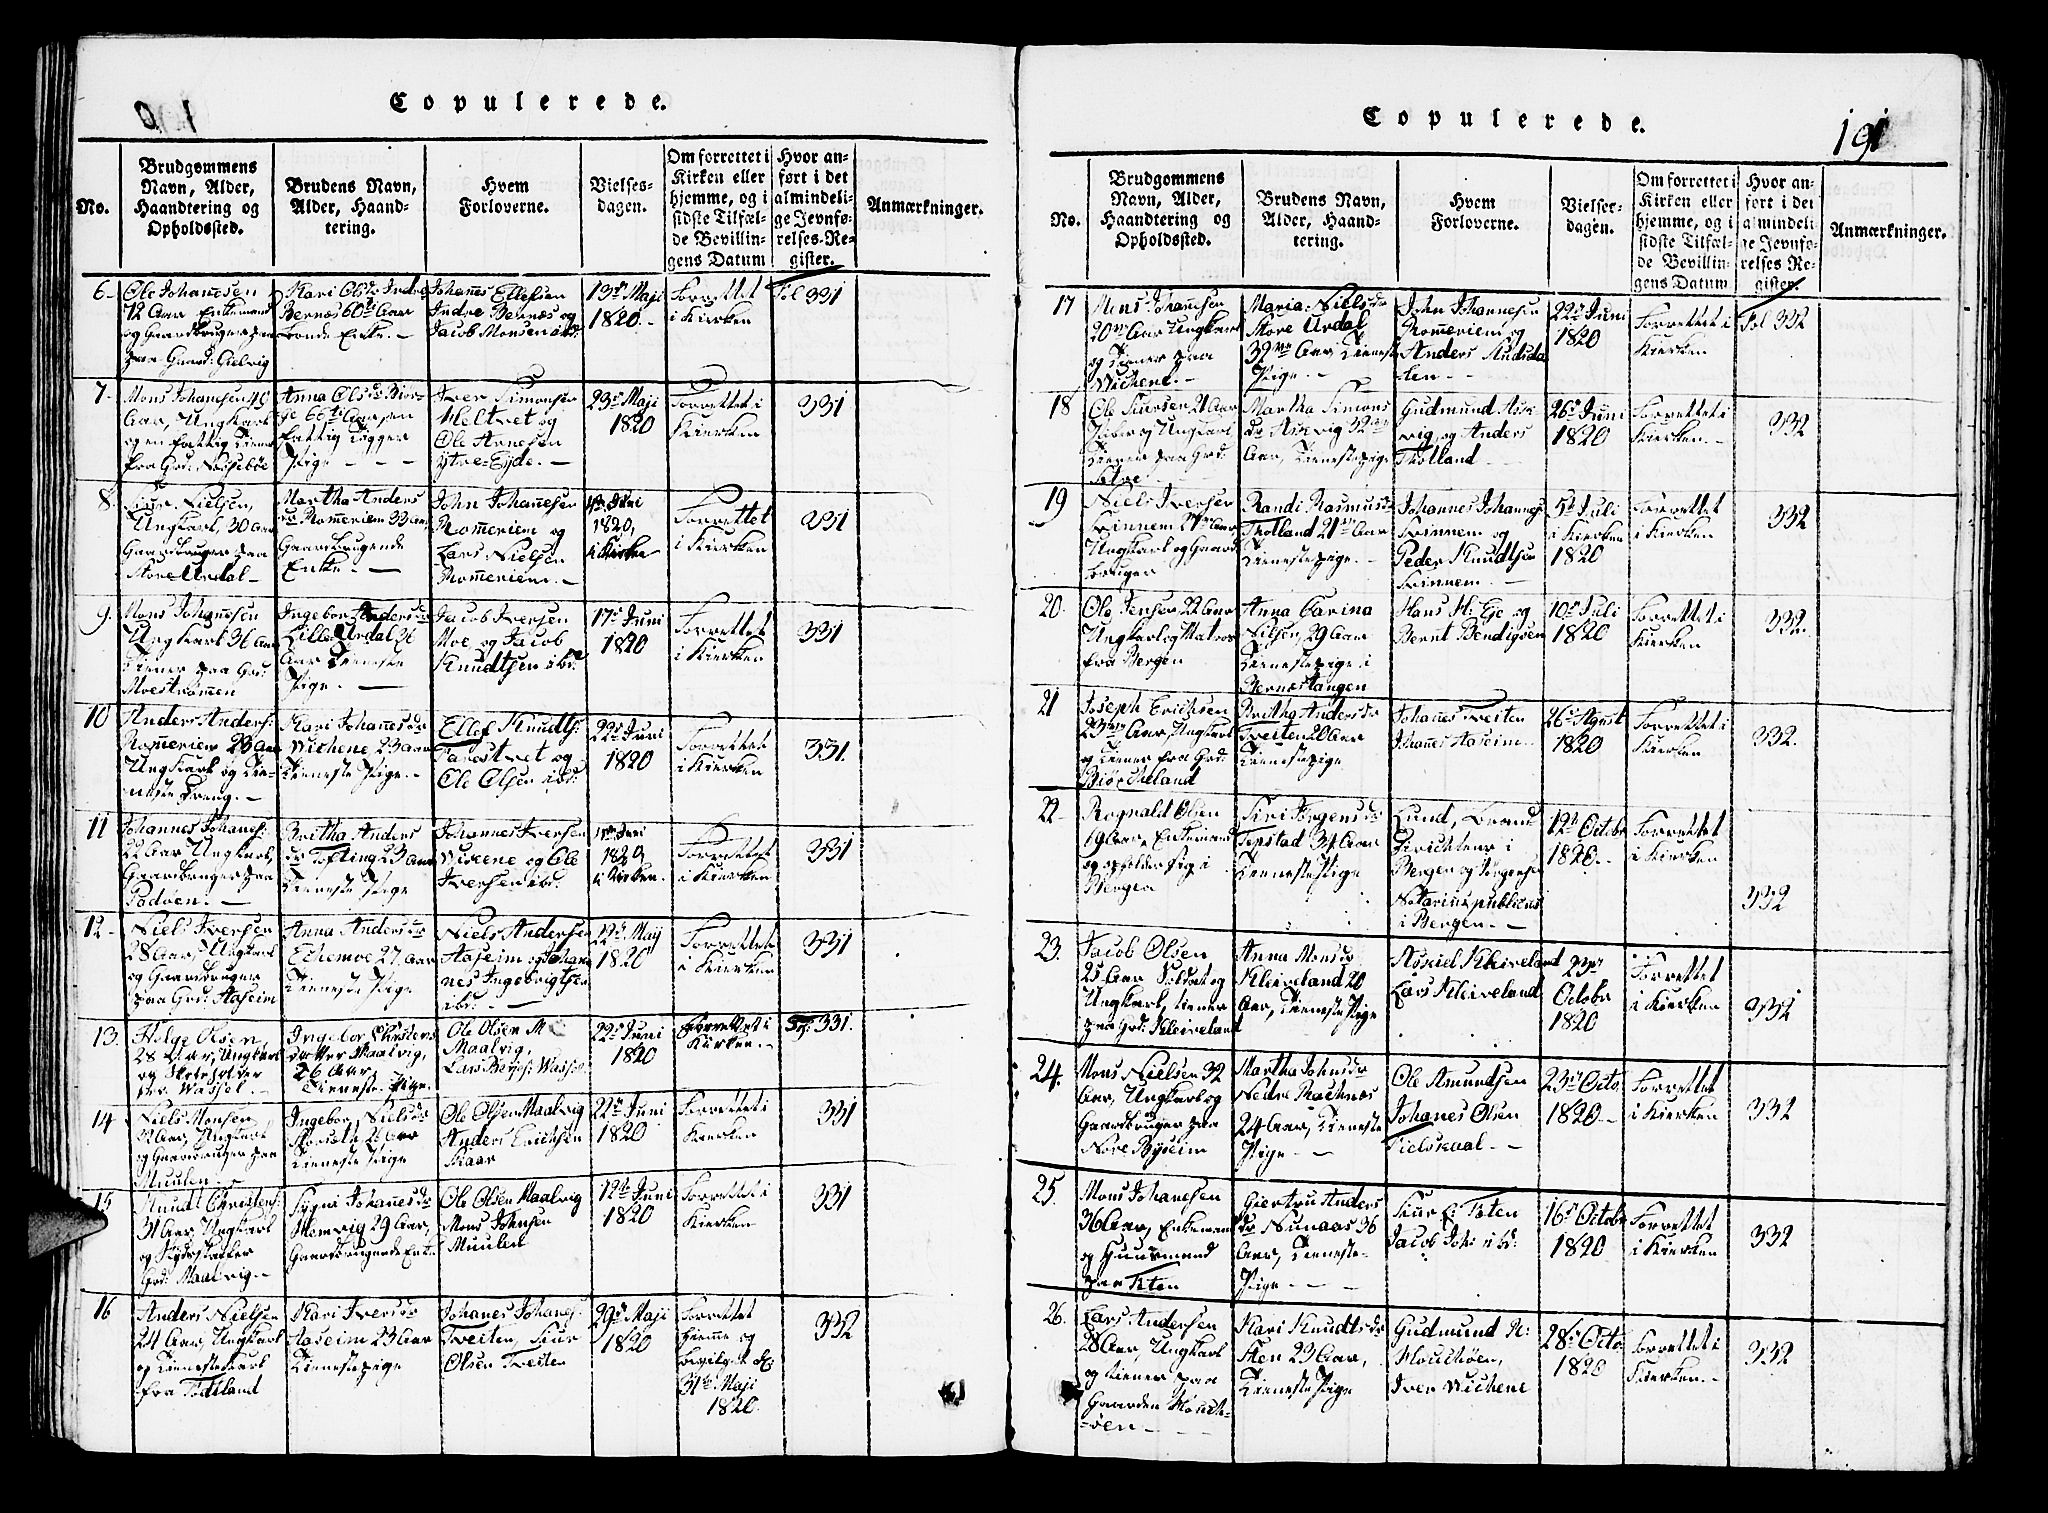 Copulerede.
No.
Brudgommens
Navn, Alder,
Haandtering og
Opholdssted.
Brudens Navn,
Alder, Haand-
tering.
Hvem
Forloverne.
Vielses-
dagen.
Om forrettet i
Kirken eller
hjemme, og i
sidste Tilfæl-
de Bevillin-
gens Datum
Hvor an-
ført i det
almindeli-
ge Jevnfø-
relses-Re-
gister.
Anmærkninger.
6.
Ole Johannesen
72 Aar Enkemand
og Gaardbruger paa
paa Gaard: Gielvig
Kari Olsdr Indre
Bernæs 60 Aar
Enke. —
Johannes Ellefsen
Indre Bernæs og
Jacob Monsen ibd:
13de Maji
1820. -
Forrettet
i Kierken
Fol 331
7.
Mons Johannesen 49
Aar, Ungkarl
og en fattig
fra Grd:
Anna Olsdr
66 Aar en
fattig
Pige - - -
Iver Simonsen
og
Ole Arnesen
Ytre-Eyde. —
23de Maji
1820
Forrettet i
Kierken
331
8.
Siur Nielsen,
Ungkarl, 30 Aar
Gaardbruger paa
Store Urdal -
Martha Anders
dr Romeriem 33 Aar
Gaardbrugende
Enke. —
John Johannesen
Romeriem og
Lars Nielsen
Romeriem. -
Juni
1820,
i Kirken
Forrettet
i Kierken
331
9.
Mons Johannesen
Ungkarl 36 Aar
Tiener paa Grd:
Moestrømen
Ingebor Andersdr
Lille Urdal 26
Aar Tieneste
Pige. —
Jacob Iversen
Moe og Jacob
Knudtsen ibd:
17de Juni
1820
Forrettet
i Kierken
331
10
Anders Anders:
Romeriem 28 Aar
Ungkarl og Tie-
neste Dreng. -
Kari Johannesdr
Wichene 23 Aar
Tieneste Pige. -
Ellef Knudts:
og
Ole Olsen ibd:
22de Juni
1820
Forrettet
i Kierken
331.
11
Johannes Johanes:
22 Aar Ungkarl,
Gaardbruger paa
Padøen. -
Britha Anders
dr Tofting 23 Aar
Tieneste Pige
Johannes Iversen
Wikene og Ole
Iversen ibd:
Juni
1820,
i Kirken.
Forrettet
i Kierken
331
12.
Niels Iversen
28 Aar, Ungkarl
og Gaardbruger
paa Grd: Aaseim
Anna Andersdr
Edemoe 27 Aar
Tieneste Pige
Niels Andersen
Aaseim og Johan
nes Ingebrigtsen
ibd: —
22de Maji
1820
Forrettet
i Kierken
331
13.
Helge Olsen,
28 Aar, Ungkarl
og Skoleholder
Wassel. -
Ingebor Christens
datter Maalvig,
26 Aar,
Tieneste Pige.
Ole Olsen M
Maalvig,
Lars Wassel.
22de Juni
1820
Forrettet i
Kirken. -
331.
14
Niels Monsen
32 Aar, Ungkarl
og Gaardbruger paa
Muulen. -
Ingebor Nielsdr
Aar
Tieneste Pige
Ole Olsen Maalvig
Anders Erichsen
Skaar
22de Juni
1820
Forrettet i
Kierken
331
15
Knud Christens:
31 Aar, Ungkarl
og
Grd: Maalvig -
Sygni Johannesdr
Hemvig 29 Aar,
Gaardbrugende Enk.
Ole Olsen Maalvig
Mons Johnsen
Muulen
12te Juni
1820
Forrettet i
Kierken
331
16
Anders Nielsen
24 Aar, Ungkarl
og Tienestekarl
fra Tatland
Kari Iversdr
Aaseim 23 Aar
Tienestepige
Johanes Johanes:
Treiten, Siur
Olsen Treiten
29de Maji
1820
Forrettet
hjemme og
bevilget d:
31te Maji
1820.
332
Copulerede.
191
No.
Brudgommens
Navn, Alder,
Haandtering og
Opholdssted.
Brudens Navn,
Alder, Haand-
tering.
Hvem
Forloverne.
Vielses-
dagen.
Om forrettet i
Kirken eller
hjemme, og i
sidste Tilfæl-
de Bevillin-
gens Datum
Hvor an-
ført i det
almindeli-
ge Jevnfø-
relses Re-
gister.
Anmærkninger.
17
Mons Johannesen
20 Aar Ungkarl
og Tiener paa
Wichene. -
Maria Nielsdr
Store Urdal
32 Aar Tieneste
Pige. -
John Johannesen
Romeriem og
Anders Audsda
len -
22de Juni
1820
Forrettet i
Kierken
Fol 332
18
Ole Siursen 21 Aar
og Ungkarl
Tiener paa Grd:
Martha Simons
dr Aasevig 32
Aar, Tienestepige
Gudmund Aase
vig, og Anders
Tholland
26de Juni
1820
Forrettet i
Kierken. -
332
19
Niels Iversen
Frinnem 27 Aar
Ungkarl og Gaard
bruger
Randi Rasmusdr
Tholland 21 Aar
Tienestepige. -
Johannes Johannes
Frinnem og
Peder Knudtsen
Frinnem. -
5te Juli
i Kirken
1820
Forrettet
i Kierken
332
20.
Ole Jensen 22 Aar
Ungkarl og Matros
fra Bergen
Anna Carina
Nilsen, 29 Aar
Tienestepige i
Bernestangen
Hans H: Eje og
Bernt Bendigsen
10de Juli
1820
Forrettet i
Kierken
332.
21
Joseph Erichsen
23 Aar, Ungkarl
og Tiener fra Grd:
Biørcheland
Britha Andersdr
Treiten 20 Aar
Tienestepige
Johanes Treiten
Johanes Aaseim. -
26de Agust
1820
Forrettet i
Kierken
332.
22
Rognald Olsen
19 Aar, Enkemand
og opholder sig i
Bergen
Siri Jørgensdr
Tepstad 34 Aar
Tieneste Pige
Lund, Brand
Directeur i
Bergen og Jørgensen
Notarius publicus
i Bergen. -
12te Octobr
1820. -
Forrettet
i Kierken
332
23.
Jacob Olsen
25 Aar Soldat og
Ungkarl, tiener
paa Grd: Kleiveland
Anna Monsdr
Kleiveland 20
Aar, Tieneste Pige
Askiel Kleiveland
Lars Kleiveland
23de
Octobr
1820
Forrettet
i Kierken
332
24.
Mons Nielsen 32
Aar, Ungkarl og
Gaardbruger paa
Nore Byseim
Martha Johnsdr
Nedre Rachnæs
24 Aar, Tieneste
Pige - -
Ole Amundsen
og
Johanes Olsen
Fielskaal. -
23de Octo.
1820. -
Forrettet
i Kierken
332
25.
Mons Johannesen
36 Aar, Enkemand
og Huusmand
paa Teten
Giertru Anders
dr Nunaas 36
Aar, Tieneste-
Pige - -
Siur E Teten
Jacob Joh: ibd:
16de Octobr
1820
Forrettet
i Kierken
332
26.
Lars Andersen
28 Aar, Ungkarl
og tiener paa
Gaarden Moustr-
øen - - -
Kari Knudtsdr
Hen 23 Aar,
Tieneste Pige
Gudmund N:
Moustøen,
Iver Wichene
28de Octo
1820
Forrettet i
Kierken. -
332